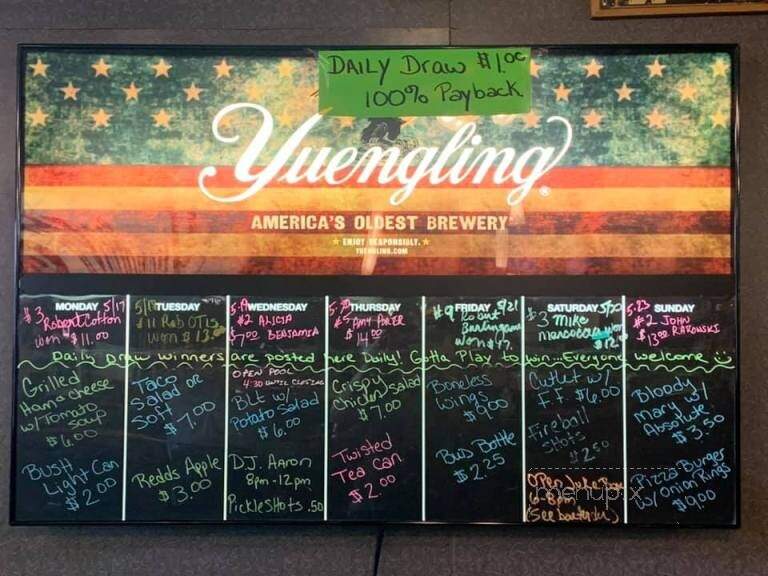 DAILY Draw $1.00
100% Payback
Yuengling®
AMERICA'S OLDEST BREWERY
★ ENJOY RESPONSIBLY. ★
YUENGLING.COM
MONDAY 5/17
#3 Robert Cotton
won $11.00
TUESDAY
#11 Rob OTis
won $13.00
WEDNESDAY
#2 ALICIA
$7.00 BENJAMIN
THURSDAY
#5 Amy
$14.00
FRIDAY 5/21
#9 Robert
Burlingame
won $17.
SATURDAY
#3 Mike
$12.00
5-23 SUNDAY
#2 JOHN
$13.00 RAKOWSKI
Daily Draw winners are posted here Daily! Gotta Play to win...Everyone welcome
Grilled
Ham & cheese
w/ Tomato
soup
$6.00
BUSH
Light Can
$2.00
Taco
Salad or
Soft
$7.00
Redds Apple
$3.00
OPEN POOL
4:30 UNTIL CLOSING
BLT w/
Potato Salad
$6.00
D.J. Aaron
8pm-12pm
PickleShots .50
Crispy
Chicken Salad
$7.00
Twisted
Tea Can
$2.00
Boneless
Wings
$9.00
Bus Bottle
$2.25
Cutlet w/
F.F. $6.00
Fireball
Shots
$2.50
Open Juke Box
(See bartender)
Bloody
Mary w/
Absolute
$3.50
Pizza Burger
w/ Onion Rings
$9.00